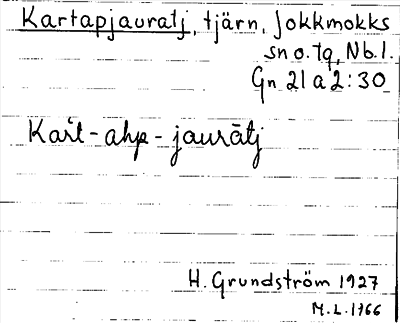 Kartapjauratj, tjärn, Jokkmokks
sn o. tg, Nb.l.
Gn 21 a 2:30
Kart-ahp-jaurātj
H. Grundström 1927
M.L. 1966